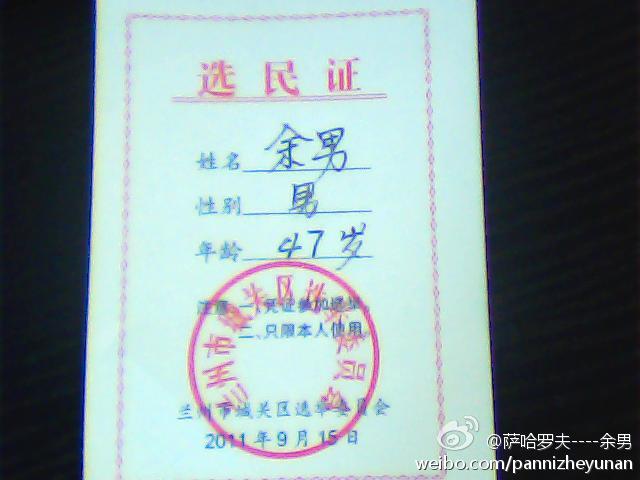 选民证
姓名 余男
性别 男
年龄 47岁
注意：一、凭证参加选举。
二、只限本人使用。
兰州市城关区选举委员会
兰州市城关区选举委员会
2011年9月15日
@萨哈罗夫----余男
weibo.com/pannizheyunan